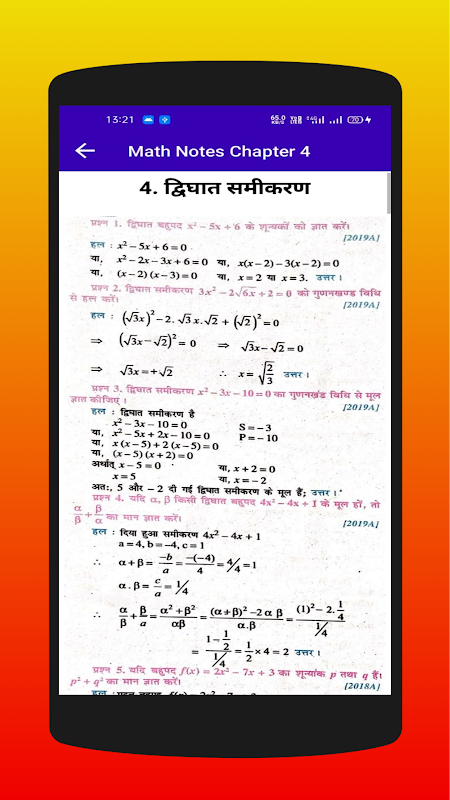 13:21 65.0 KB/S Vo9 LTE 4G 70
Math Notes Chapter 4
4. द्विघात समीकरण
प्रश्न 1. द्विघात बहुपद x² – 5x + 6 के शून्यकों को ज्ञात करें।
[2019A]
हल : x² – 5x + 6 = 0
या, x² – 2x – 3x + 6 = 0 या, x(x – 2) – 3(x – 2) = 0
या, (x – 2) (x – 3) = 0 या, x = 2 या x = 3. उत्तर।
प्रश्न 2. द्विघात समीकरण 3x² – 2√6x + 2 = 0 को गुणनखण्ड विधि
से हल करें। [2019A]
हल : (√3x)² – 2. √3 x. √2 + (√2)² = 0
⇒ (√3x – √2)² = 0 ⇒ √3x – √2 = 0
⇒ √3x = +√2 ∴ x = √2/3 उत्तर।
प्रश्न 3. द्विघात समीकरण x² – 3x – 10 = 0 का गुणनखंड विधि से मूल
ज्ञात कीजिए। [2019A]
हल : द्विघात समीकरण है
x² – 3x – 10 = 0 S = – 3
या, x² – 5x + 2x – 10 = 0 P = – 10
या, x (x – 5) + 2 (x – 5) = 0
या, (x – 5) (x + 2) = 0
अर्थात् x – 5 = 0 या, x + 2 = 0
x = 5 या, x = – 2
अतः, 5 और – 2 दी गई द्विघात समीकरण के मूल हैं; उत्तर।
प्रश्न 4. यदि α, β किसी द्विघात बहुपद 4x² – 4x + 1 के मूल हों, तो
α/β + β/α का मान ज्ञात करें। [2019A]
हल : दिया हुआ समीकरण 4x² – 4x + 1
a = 4, b = –4, c = 1
∴ α + β = –b/a = –(–4)/4 = 4/4 = 1
α . β = c/a = 1/4
∴ α/β + β/a = α² + β²/αβ = (α + β)² – 2 α β/α.β = (1)² – 2. 1/4/1/4
= 1 – 1/2/1/4 = 1/2 × 4 = 2 उत्तर।
प्रश्न 5. यदि बहुपद f(x) = 2x² – 7x + 3 का शून्यांक p तथा q हैं।
p² + q² का मान ज्ञात करें। [2018A]